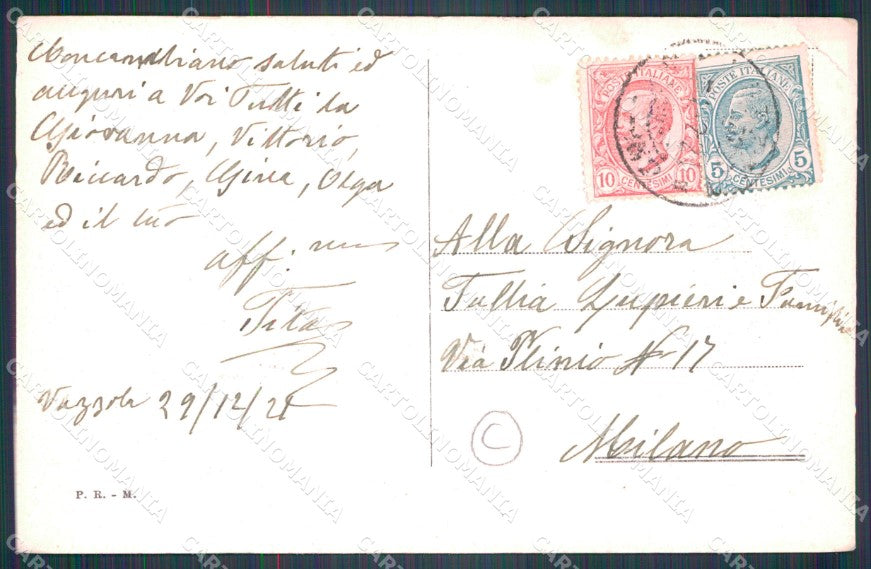 saluti ed
auguri a Voi Tutti la
Giovanna, Vittorio,
Riccardo, Gina, Olga
ed il tuo
aff:
Tita
Vazzola 29/12/21
P. R. - M.
POSTE ITALIANE
10 CENTESIMI 10
POSTE ITALIANE
5 CENTESIMI 5
Alla Signora
Tullia Lupieri e Famiglia
Via Plinio N° 17
Milano
C
CARTOLINOMANIA